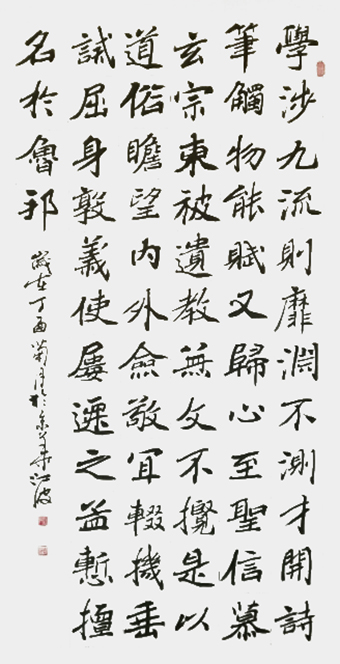 學涉九流則靡淵不測才開詩
筆觸物能賦又歸心至聖信慕
玄宗東被遺教無文不攬是以
道俗瞻望內外僉敬冝輟機垂
試屈身敦義使屢之益慙擅
名於魯邦
歲在丁酉菊月於京華江波